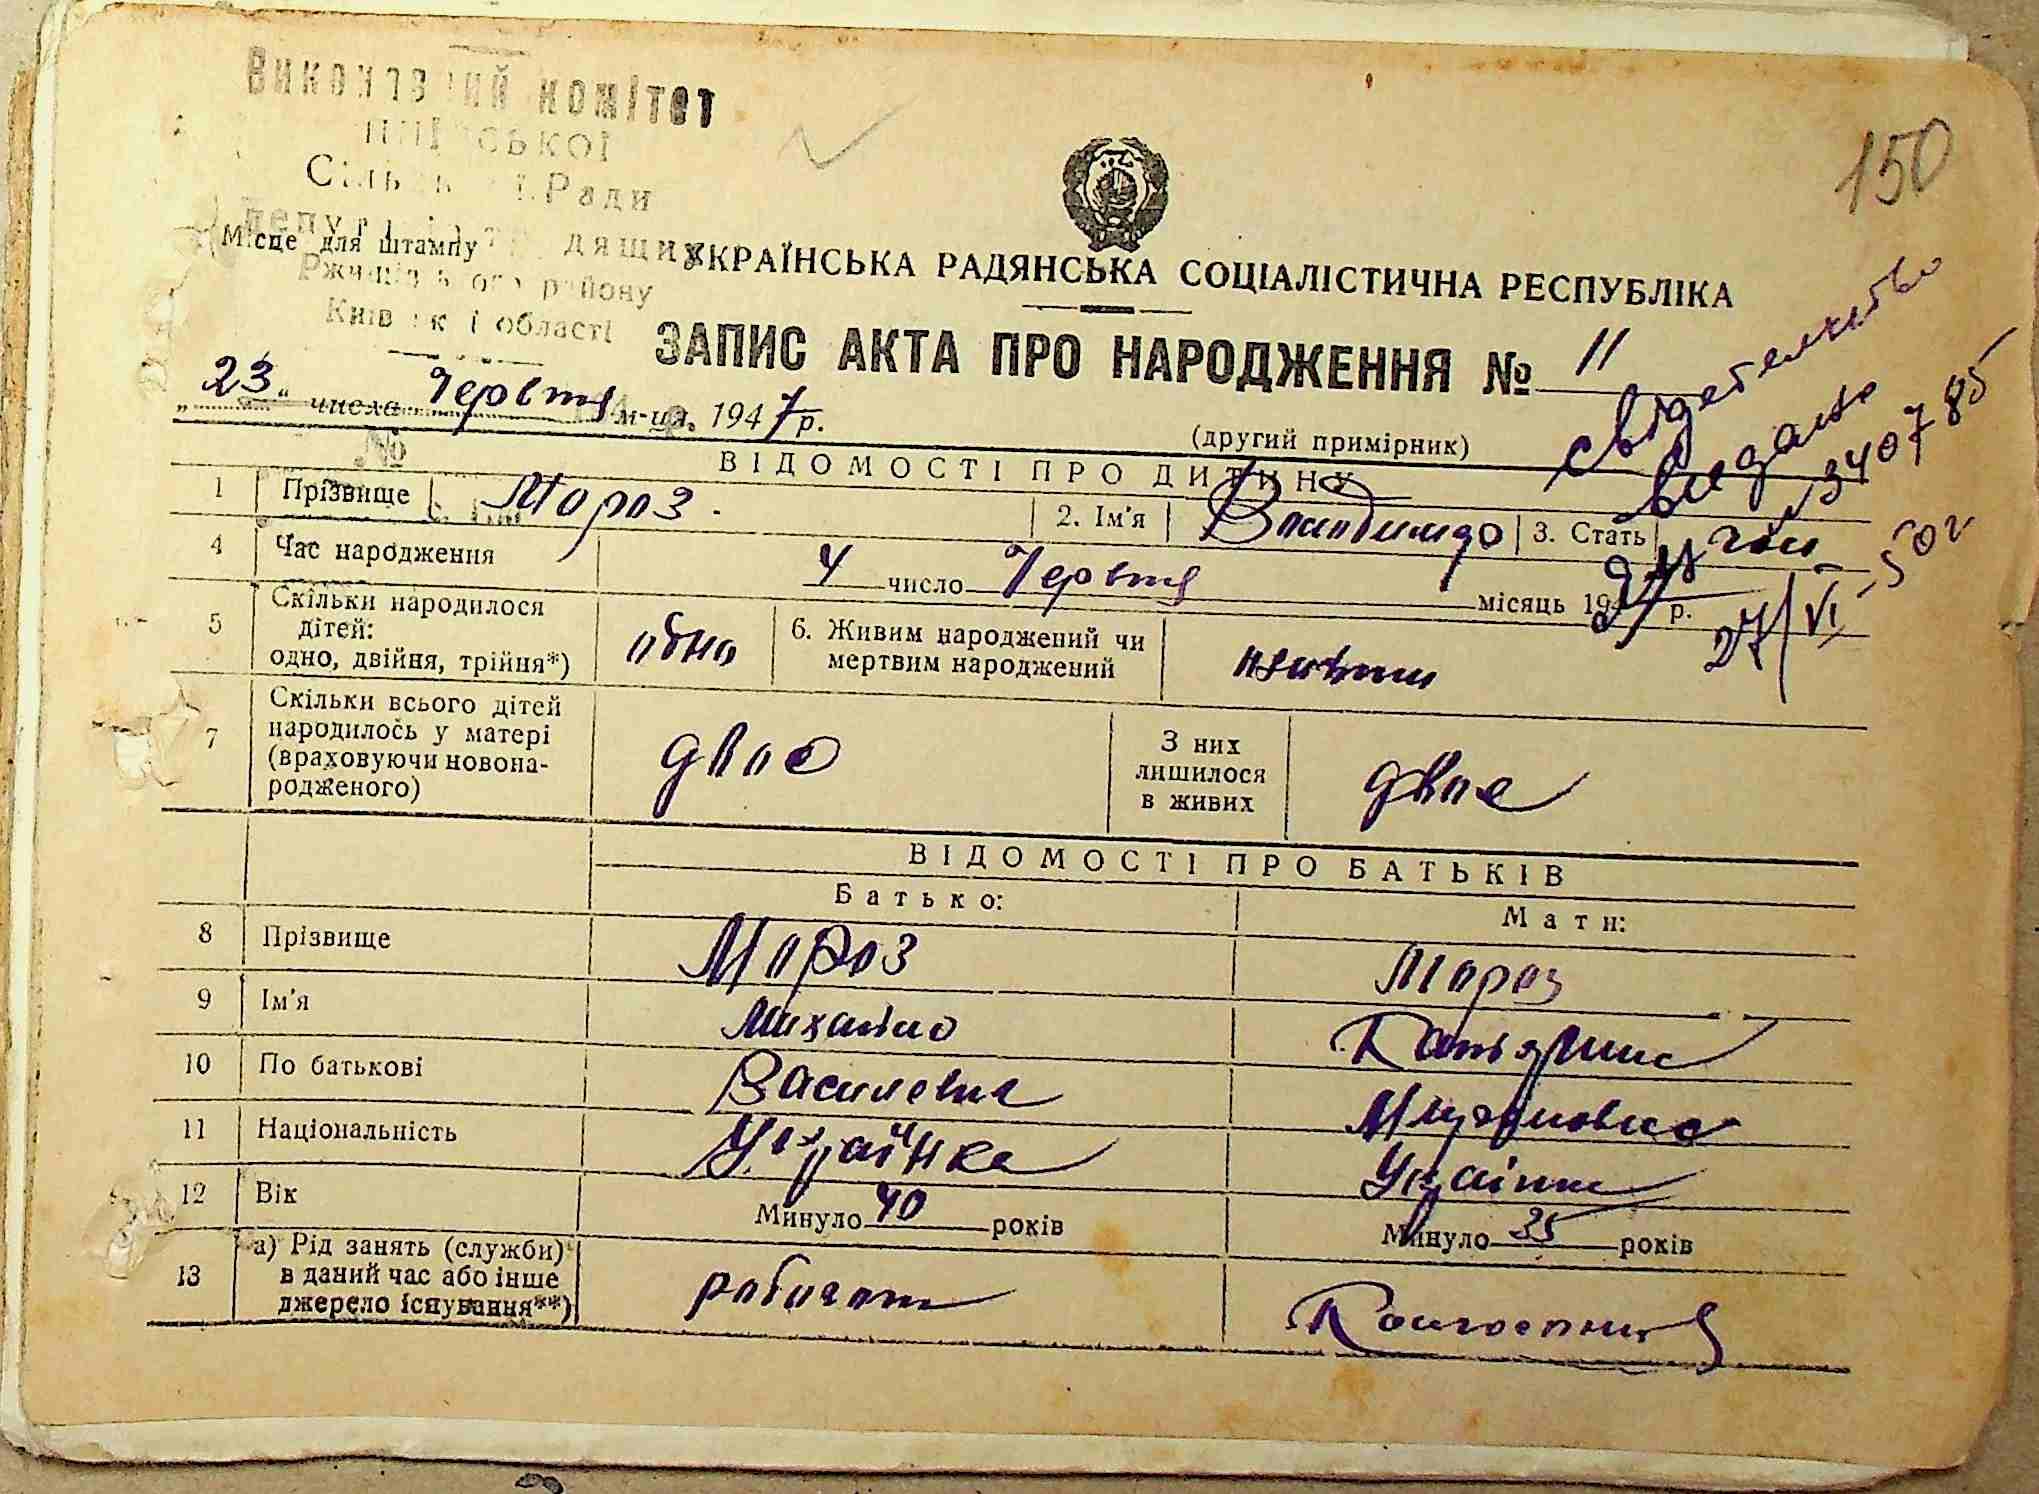 150
Виконавчий комітет
Сільської Ради
депутатів трудящих
Місце для штампу
Ржищівського району
Київської області
УКРАЇНСЬКА РАДЯНСЬКА СОЦІАЛІСТИЧНА РЕСПУБЛІКА
ЗАПИС АКТА ПРО НАРОДЖЕННЯ № 11
„23“ числа Червня м-ця 1947 р.
(другий примірник)
№
свідетельство
видано
340785
27/VI-50г
ВІДОМОСТІ ПРО ДИТИНУ
1 Прізвище Мороз 2. Ім'я Владимир 3. Стать чол
4 Час народження 4 число Червня місяць 1947 р.
5 Скільки народилося
дітей:
одно, двійня, трійня*) одно
6. Живим народжений чи
мертвим народжений живим
7 Скільки всього дітей
народилось у матері
(враховуючи новона-
родженого) двоє
З них
лишилося
в живих двоє
ВІДОМОСТІ ПРО БАТЬКІВ
Батько: Мати:
8 Прізвище Мороз Мороз
9 Ім'я Михайло Катярина
10 По батькові Василевич
11 Національність Українка Українка
12 Вік Минуло 40 років Минуло 35 років
13 а) Рід занять (служби)
в даний час або інше
джерело існування**) рабочий Колгоспниця